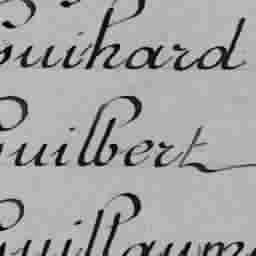 Guihard
Guilbert
Guillaume